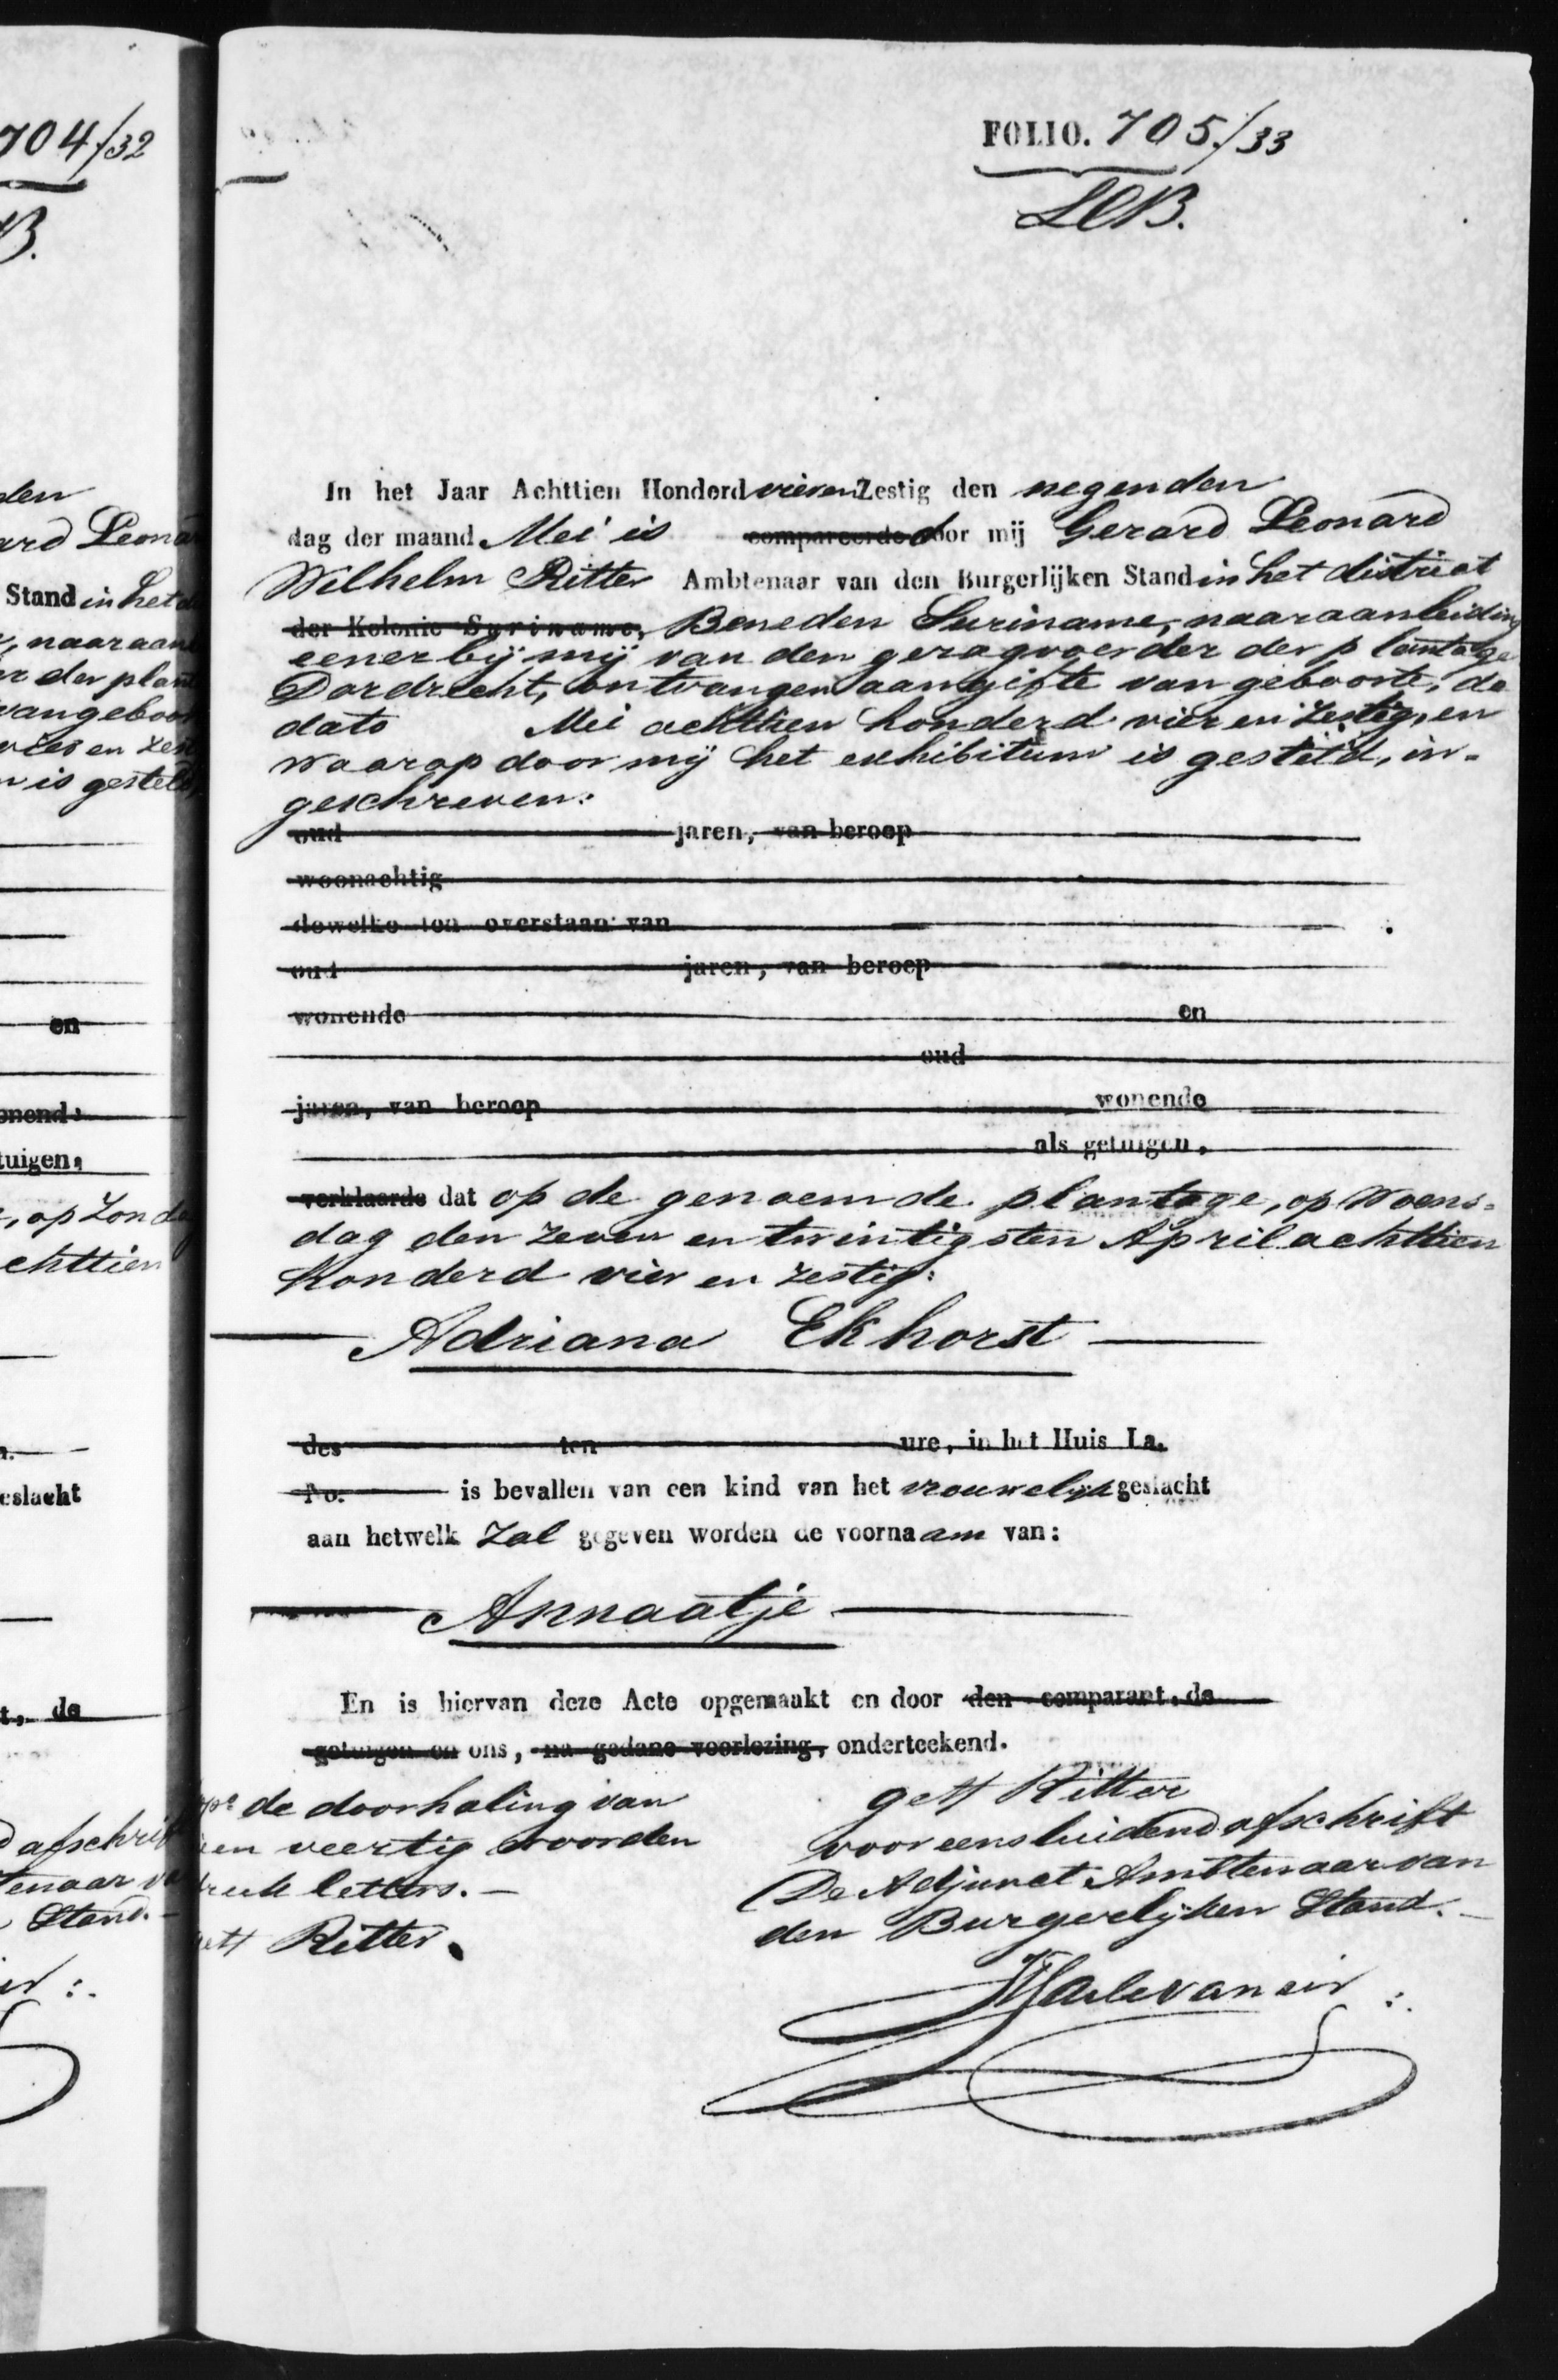 704/32
B.
FOLIO. 705./33
LCB.
In het Jaar Achttien Honderd vier en Zestig den negenden
dag der maand Mei is compareerde door mij Gerard Leonard
Wilhelm Ritter Ambtenaar van den Burgerlijken Stand in het district
der Kolonie Suriname, Beneden Suriname, naar aanleiding
eener bij mij van den gezagvoerder der plantage
Dordrecht, ontvangen aangifte van geboorte, de
dato Mei achttien honderd vier en zestig, en
waarop door mij het exhibitum is gesteld, in-
geschreven:
oud jaren, van beroep
woonachtig
dewelke ten overstaan van
oud jaren, van beroep
wonende en
oud
jaren, van beroep wonende
als getuigen,
verklaarde dat op de genoemde plantage, op Woens-
dag den zeven en twintigsten April achttien
honderd vier en zestig:
Adriana Ekhorst
des ten ure, in het Huis La.
No. is bevallen van een kind van het vrouwelijk geslacht
aan hetwelk zal gegeven worden de voornaam van:
Annaatje
En is hiervan deze Acte opgemaakt en door den comparant, de
getuigen en ons, na gedane voorlezing, onderteekend.
de doorhaling van
en veertig woorden
druk letters.—
gett Ritter.
gett Ritter
voor eensluidend afschrift
De Adjunct Ambtenaar van
den Burgerlijken Stand.—